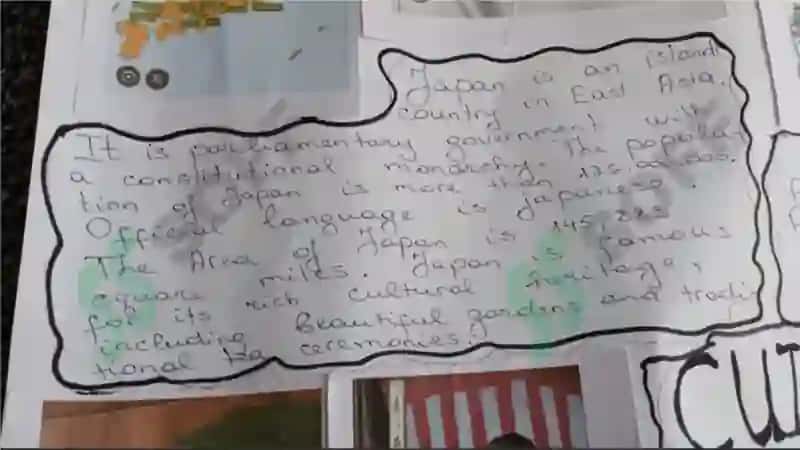 Japan is an island
country in East Asia.
It is parliamentary government with
a constitutional monarchy. The popula
tion of Japan is more than
Official language is Japanese.
The Area of Japan is 145,
square miles. Japan is famous
for its rich cultural heritage,
including beautiful gardens and tradi
tional tea ceremonies.
CU